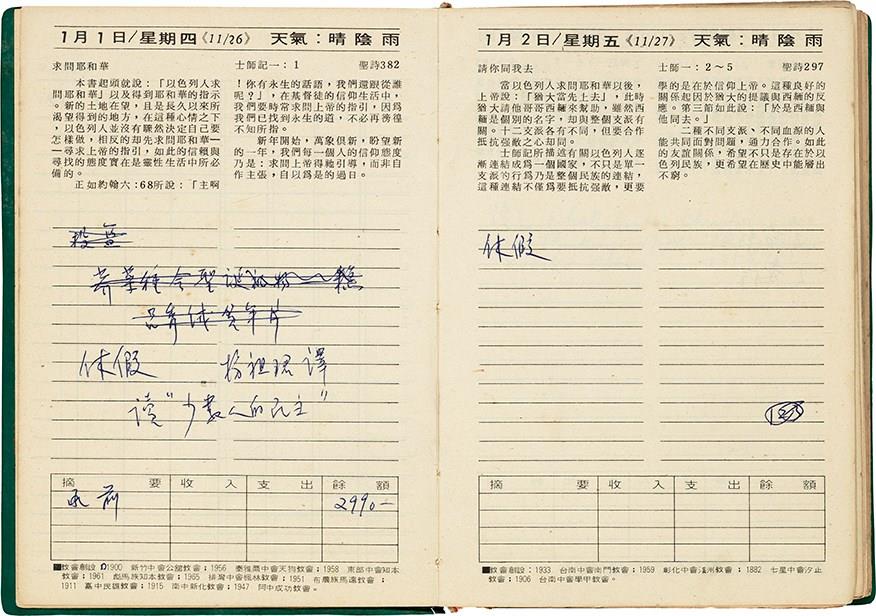 1月1日/星期四《11/26》 天氣：晴陰雨
求問耶和華 士師記一：1 聖詩382
本書起頭就說：「以色列人求
問耶和華」以及得到耶和華的指示
。新的土地在望，且是長久以來所
渴望得到的地方，在這種心情之下
，以色列人並沒有驟然決定自己要
怎樣做，相反的却先求問耶和華—
—尋求上帝的指引，如此的信賴與
尋找的態度實在是靈性生活中所必
備的。
正如約翰六：68所說：「主啊
！你有永生的話語，我們還跟從誰
呢？」，在基督徒的信仰生活中，
我們要時常求問上帝的指引，因爲
我們已找到永生的道，不必再徬徨
不知所指。
新年開始，萬象俱新，盼望新
的一年，我們每一個人的信仰態度
乃是：求問上帝得祂引導，而非自
作主張，自以爲是的過日。
休假 楊祖珺譯
讀"少數人的民主"
摘要 收入 支出 餘額
承前 2990-
■教會創設：1900 新竹中會公館教會；1956 泰雅爾中會天狗教會；1958 東部中會知本
教會；1961 彪馬族知本教會；1965 排灣中會楓林教會；1951 布農族馬遠教會；
1911 嘉中民雄教會；1915 南中新化教會；1947 阿中成功教會。
1月2日/星期五《11/27》 天氣：晴陰雨
請你同我去 士師一：2～5 聖詩297
當以色列人求問耶和華以後，
上帝說：「猶大當先上去」，此時
猶大請他哥哥西緬來幫助，雖然西
緬是個別的名字，却與整個支派有
關。十二支派各有不同，但要合作
抵抗強敵之心却同。
士師記所描述有關以色列人逐
漸連結成爲一個國家，不只是單一
支派的行爲乃是整個民族的連結，
這種連結不僅爲要抵抗强敵，更要
學的是在於信仰上帝。這種良好的
關係起因於猶大的提議與西緬的反
應。第三節如此說：「於是西緬與
他同去。」
二種不同支派、不同血源的人
能共同面對問題，通力合作。如此
的友誼關係，希望不只是存在於以
色列民族，更希望在歷史中能層出
不窮。
休假
摘要 收入 支出 餘額
■教會創設：1933 台南中會南門教會；1959 彰化中會溪洲教會；1882 七星中會汐止
教會；1906 台南中會學甲教會。